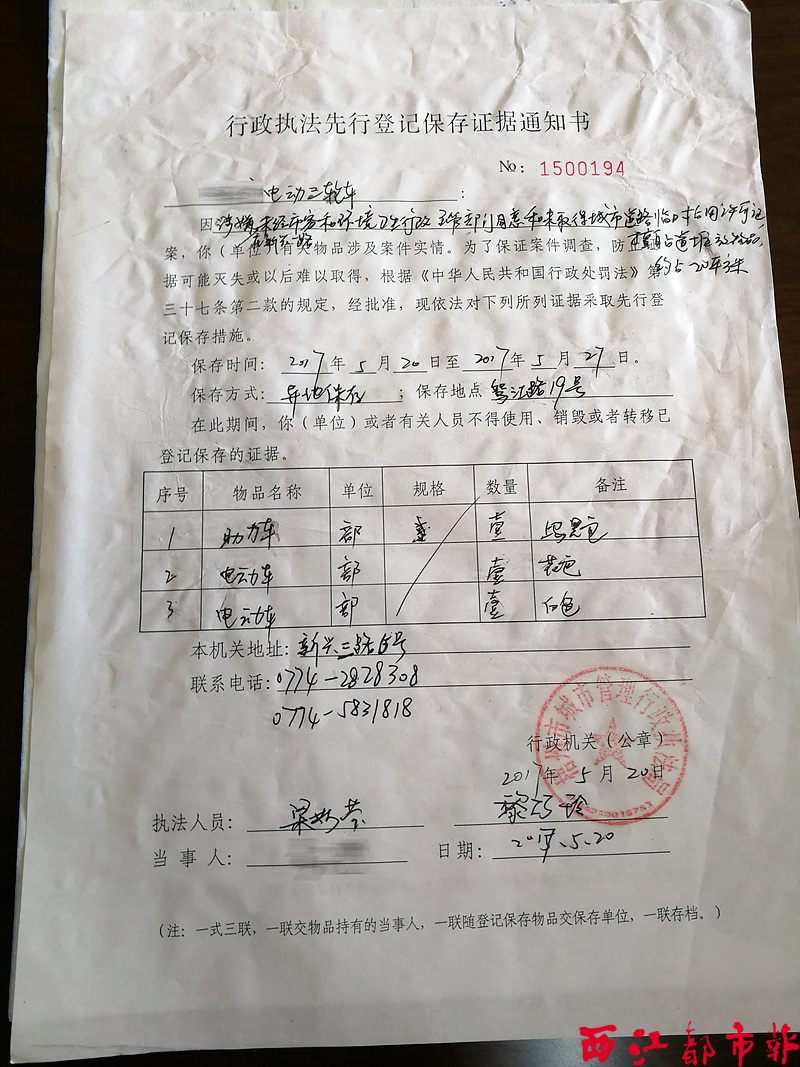 行政执法先行登记保存证据通知书
No: 1500194
电动三轮车:
因涉嫌未经市容和环境卫生行政主管部门同意和未取得城市道路临时占用许可证
案，你（单位）有关物品涉及案件实情。为了保证案件调查，防
据可能灭失或以后难以取得，根据《中华人民共和国行政处罚法》第 约占20平方米
三十七条第二款的规定，经批准，现依法对下列所列证据采取先行登
记保存措施。
保存时间: 2017年5月20日至2017年5月27日。
保存方式: 异地保存 ；保存地点 鸳江路19号
在此期间，你（单位）或者有关人员不得使用、销毁或者转移已
登记保存的证据。
序号 物品名称 单位 规格 数量 备注
1 助力车 部 壹
2 电动车 部 壹
3 电动车 部 壹 白色
本机关地址: 新兴三路6号
联系电话: 0774-2828308
0774-5831818
行政机关（公章）
2017年5月20日
执法人员:
当事人: 日期: 2017.5.20
（注：一式三联，一联交物品持有的当事人，一联随登记保存物品交保存单位，一联存档。）
西江都市报